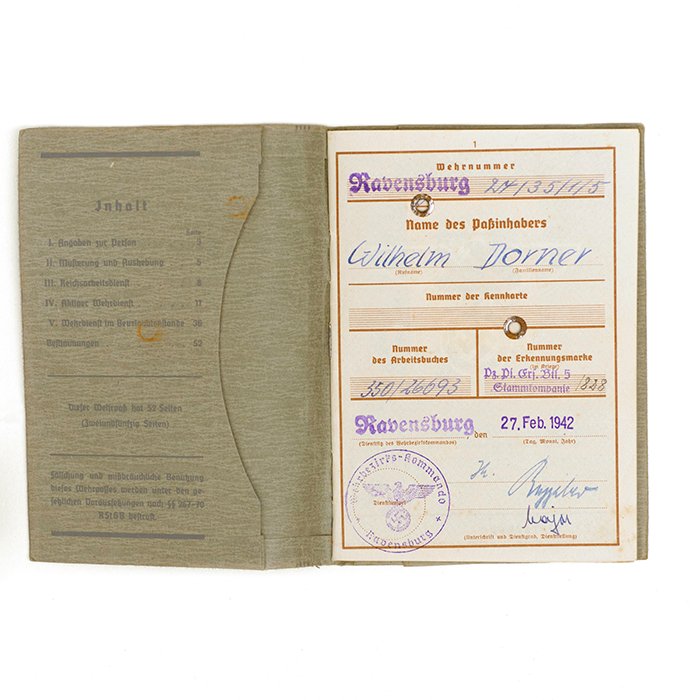 Inhalt
Seite
I. Angaben zur Person 3
II. Musterung und Aushebung 5
III. Reichsarbeitsdienst 8
IV. Aktiver Wehrdienst . . . 11
V. Wehrdienst im Beurlaubtenstande 36
Bestimmungen . . . . 52
Dieser Wehrpaß hat 52 Seiten
(Zweiundfünfzig Seiten)
Fälschung und mißbräuchliche Benutzung
dieses Wehrpasses werden unter den ge-
setzlichen Voraussetzungen nach §§ 267-70
RStGB bestraft.
1
Wehrnummer
Ravensburg 24/35/1/5
Name des Paßinhabers
Wilhelm Dorner
(Rufname) (Familienname)
Nummer der Kennkarte
Nummer
des Arbeitsbuches
350/26693
Nummer
der Erkennungsmarke
(im Kriege)
Pz. Pi. Ers. Btl. 5
Stammkompanie 1828
Ravensburg, den 27. Feb. 1942
(Dienstsitz des Wehrbezirkskommandos) (Tag, Monat, Jahr)
Wehrbezirks-Kommando
Ravensburg
(Dienststempel)
Major
(Unterschrift und Dienstgrad, Dienststellung)